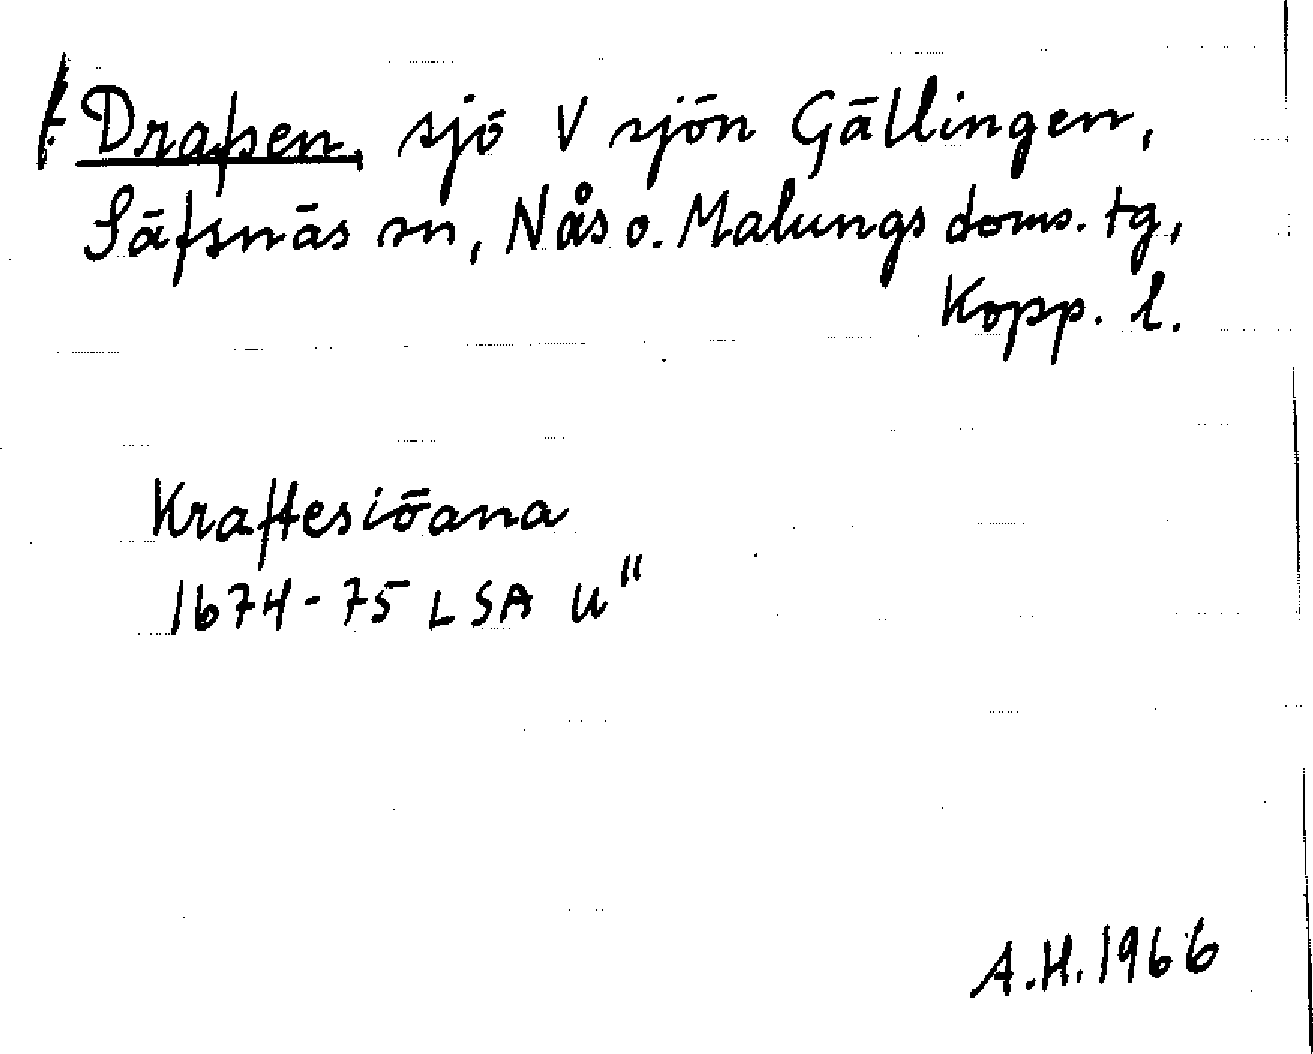 Drapen, sjö V sjön Gällingen,
Säfsnäs sn, Nås o. Malungs doms. tg,
Kopp. l.
Kraftesiöana
1674-75 LSA U"
A.H. 1966